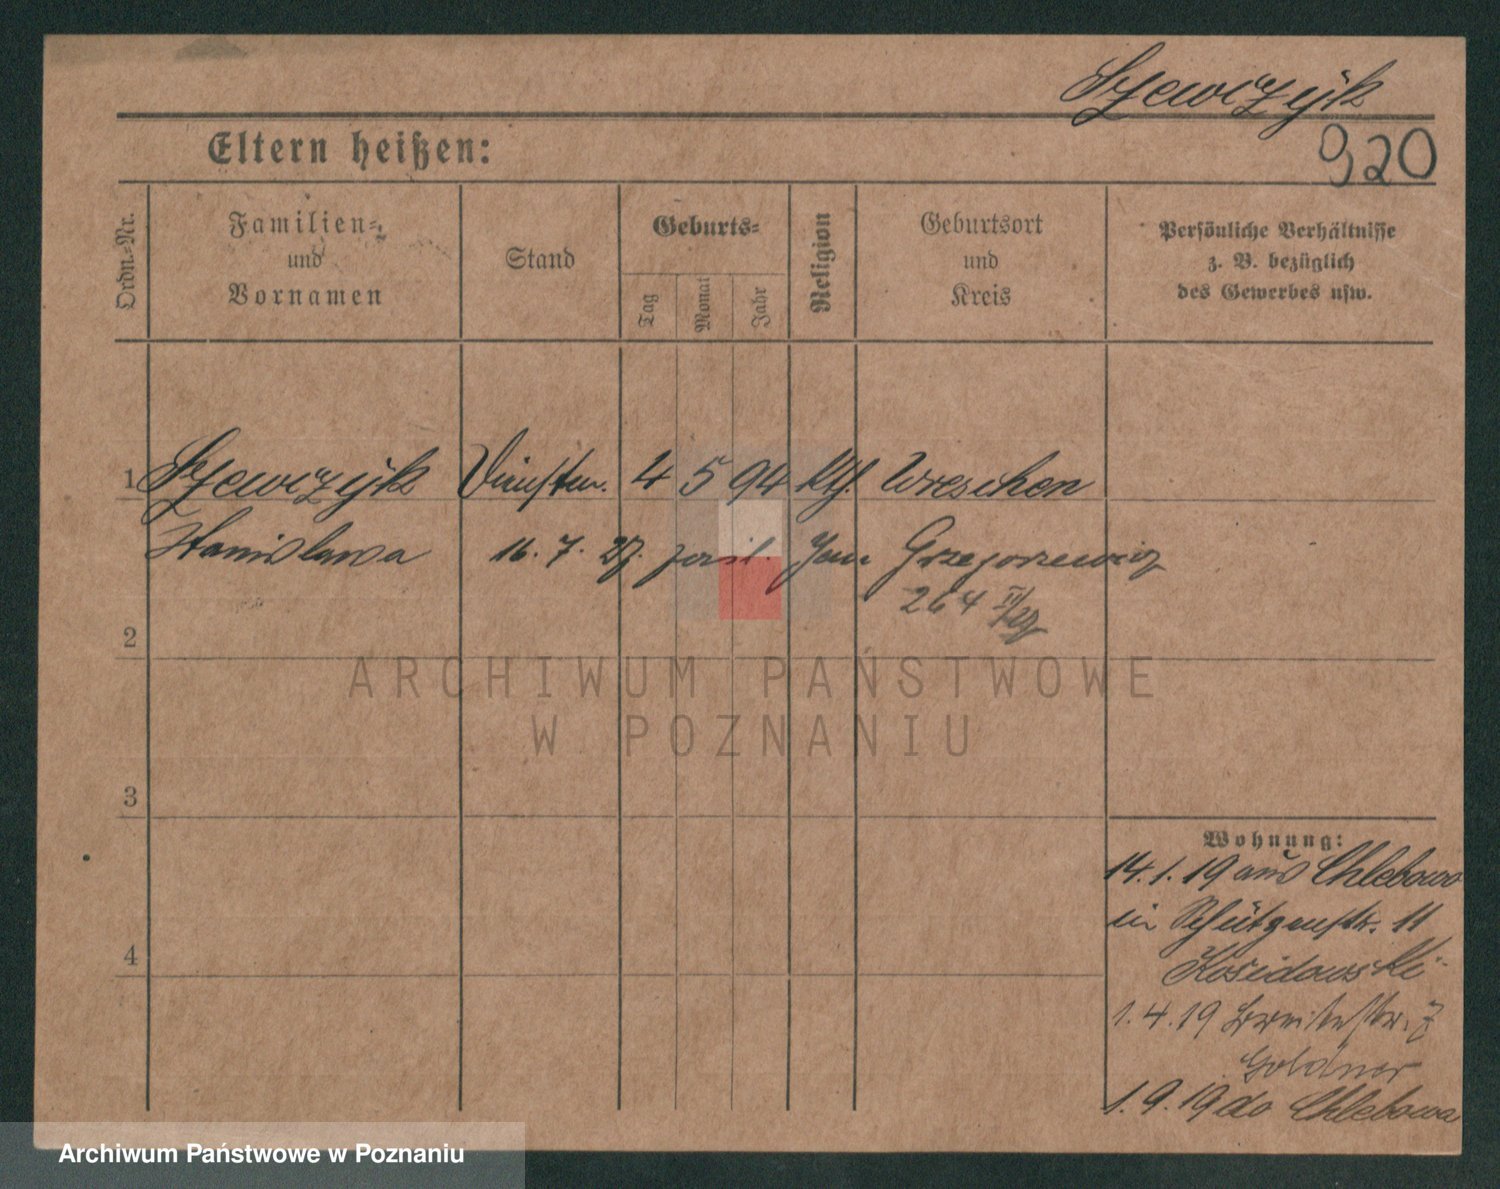 Szewczyk
920
Eltern heißen:
Ordn.-Nr.
Familien- und Vornamen
Stand
Geburts-
Tag
Monat
Jahr
Religion
Geburtsort und Kreis
Persönliche Verhältnisse
z. B. bezüglich
des Gewerbes usw.
1 Szewczyk 4 5 94 kth. Wreschen
Stanislawa 16. 7. 27. Jan Grzegorzewicz
264
2
ARCHIWUM PAŃSTWOWE
W POZNANIU
3
4
Wohnung:
14.1.19 aus Chlebowo
in Schützenstr. 11
Kosidowski
1.4.19 Breitestr. 7
Goldner
1.9.19 do Chlebowa
Archiwum Państwowe w Poznaniu